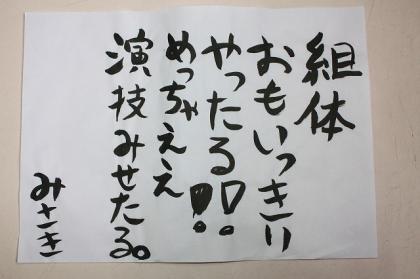 組体
おもいっきり
やったる!!
めっちゃええ
演技みせたる。
みさき